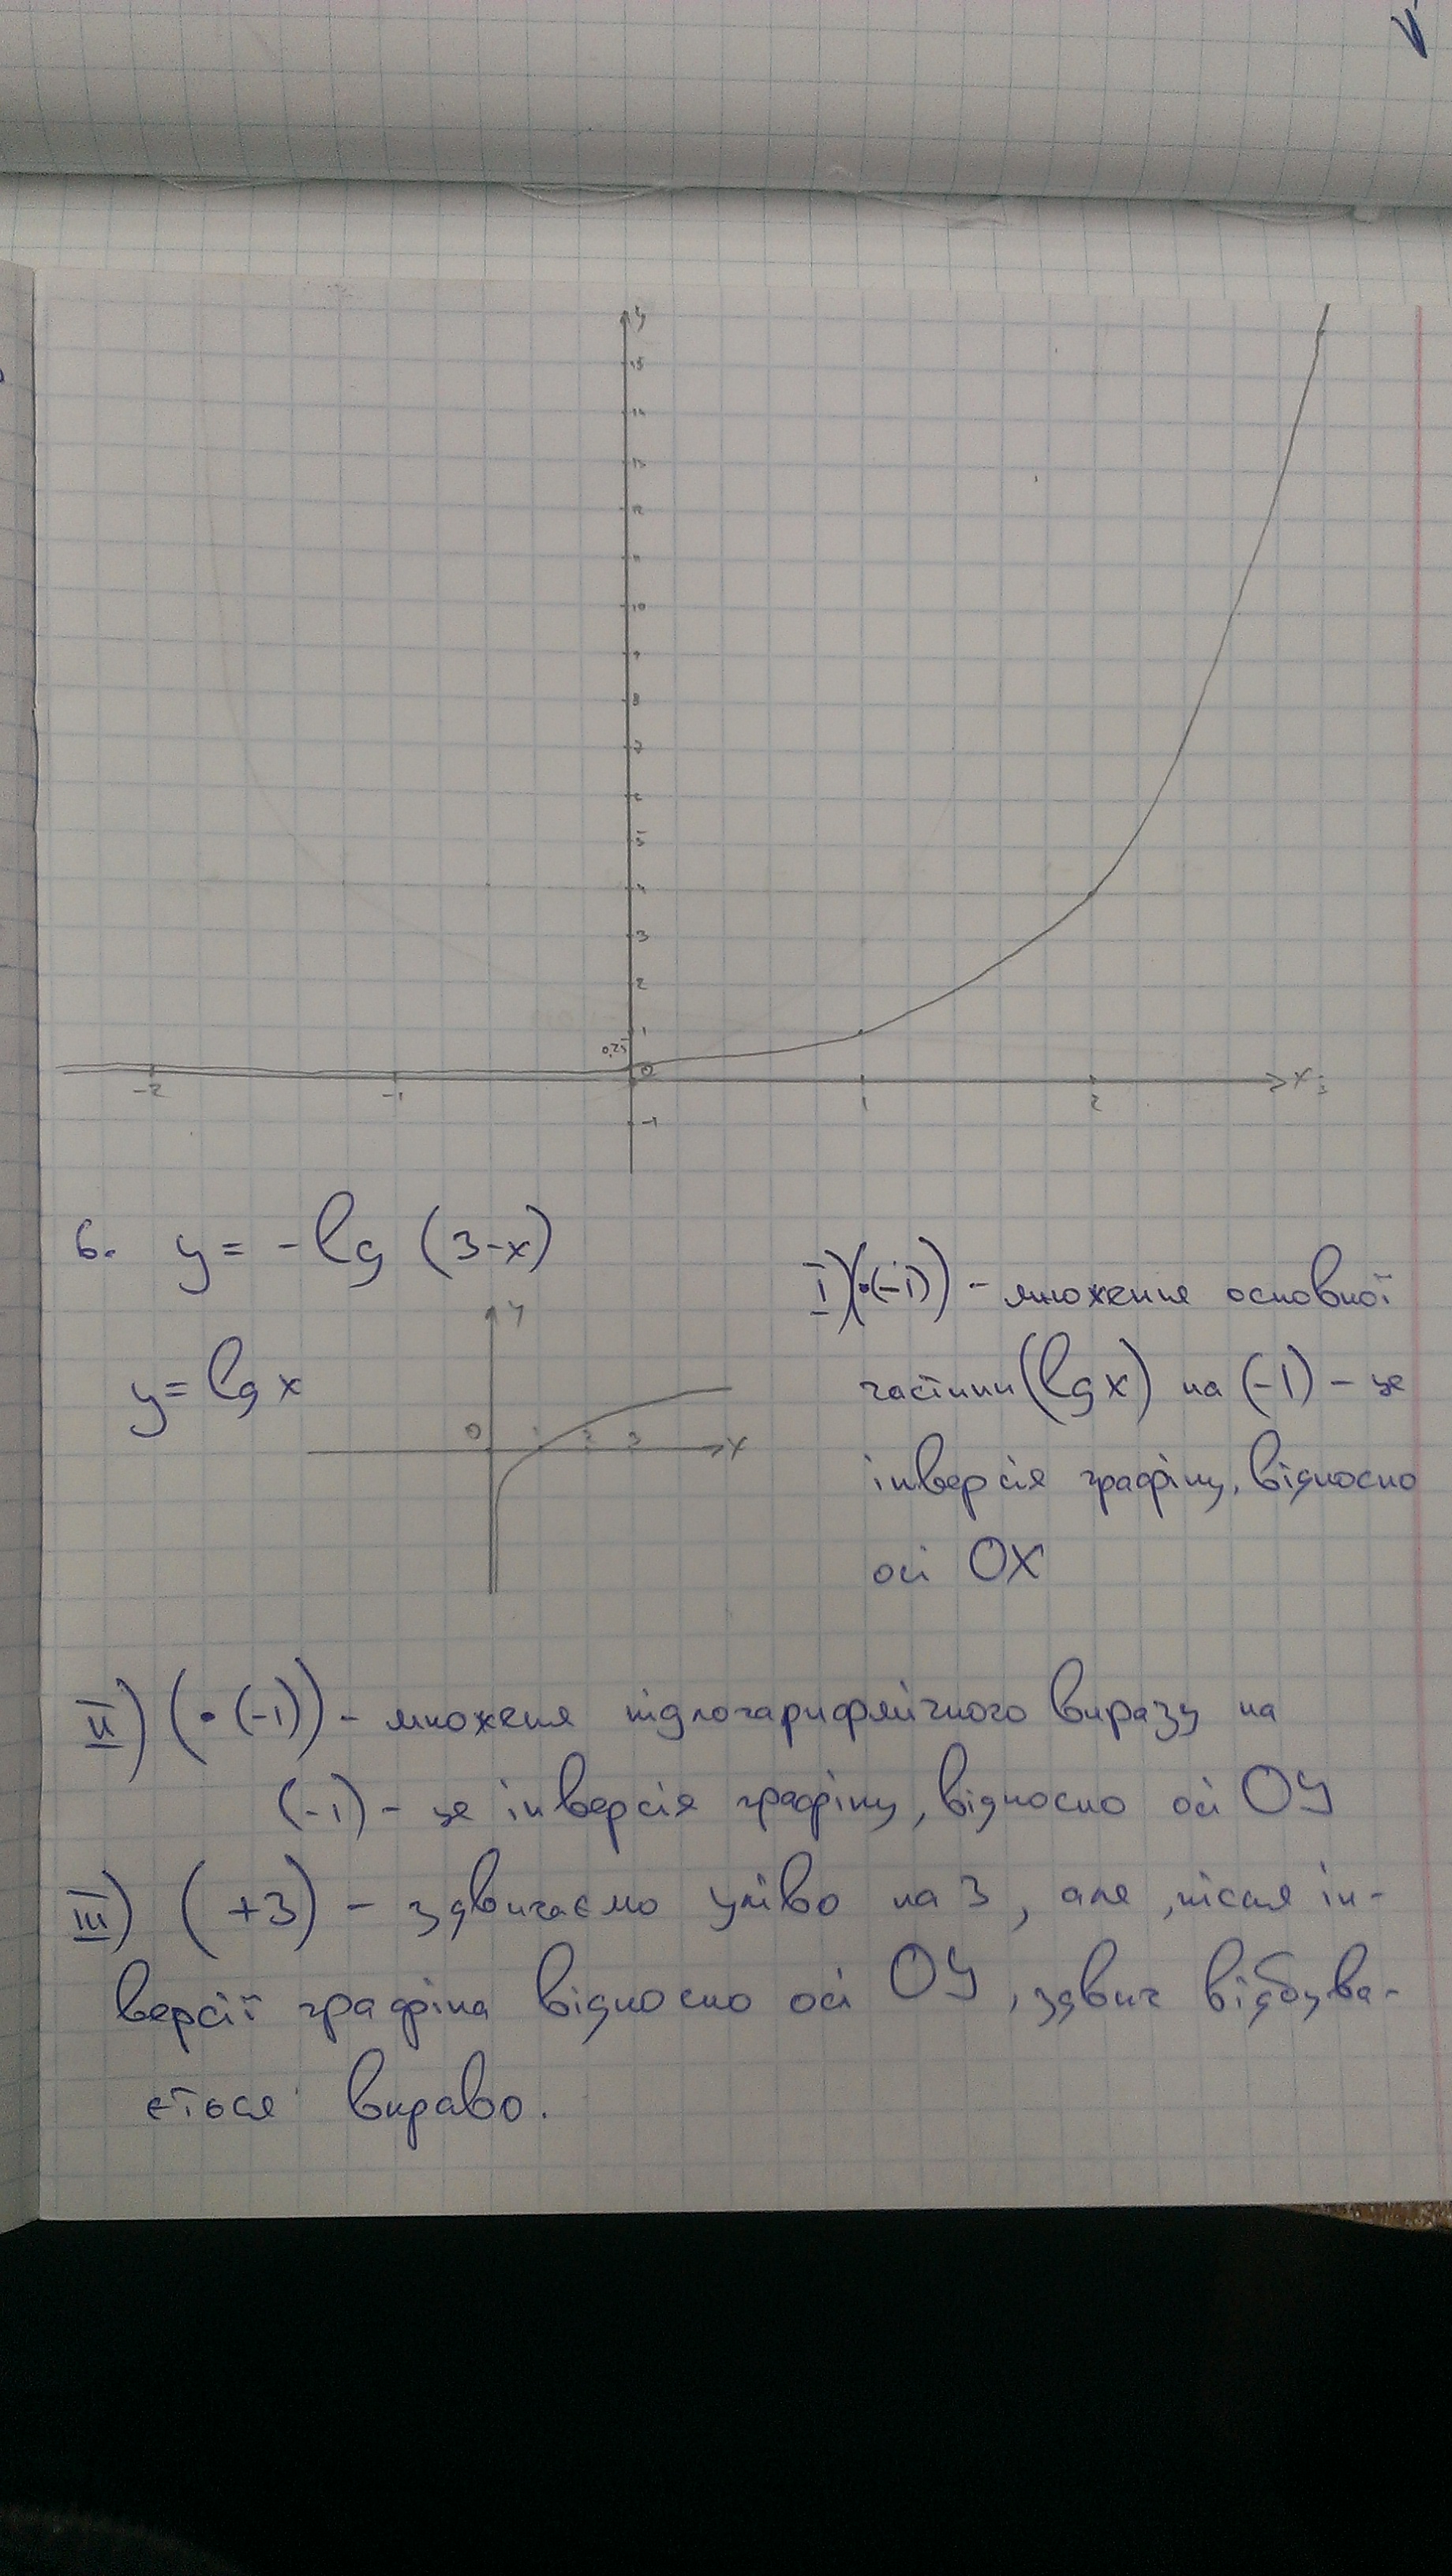 y
15
14
13
12
11
10
9
8
7
6
5
4
3
2
1
0,25
0
-2 -1 1 2 x 3
-1
6. y = -lg (3-x)
I) (·(-1)) - множення основної
y
y = lg x
частини (lg x) на (-1) - це
0 1 2 3 x
інверсія графіку, відносно
осі OX
II) (·(-1)) - множеня підлогарифмічного виразу на
(-1) - це інверсія графіку, відносно осі OY
III) (+3) - здвигаємо уліво на 3, але, після ін-
версії графіка відносно осі OY, здвиг відбува-
ється вправо.